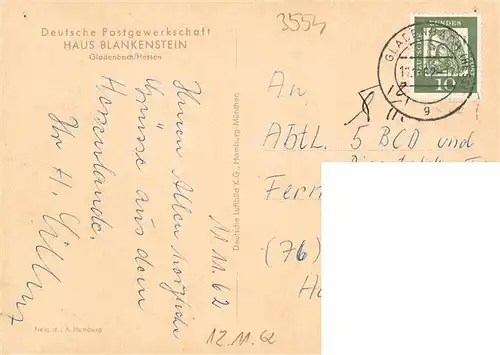 Deutsche Postgewerkschaft
HAUS BLANKENSTEIN
Gladenbach/Hessen
3554
11.11.62
Ihnen Allen herzliche
Grüsse aus dem
Hessenlande.
Ihr H.
12.11.62
Deutsche Luftbild K.G., Hamburg-München
Freig. d. L A Hamburg
BUNDES
10
GLADENBACH
g
An
Abtl. 5 BCD und
Fern
(76)